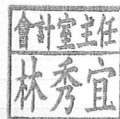 會計室主任
林秀宜